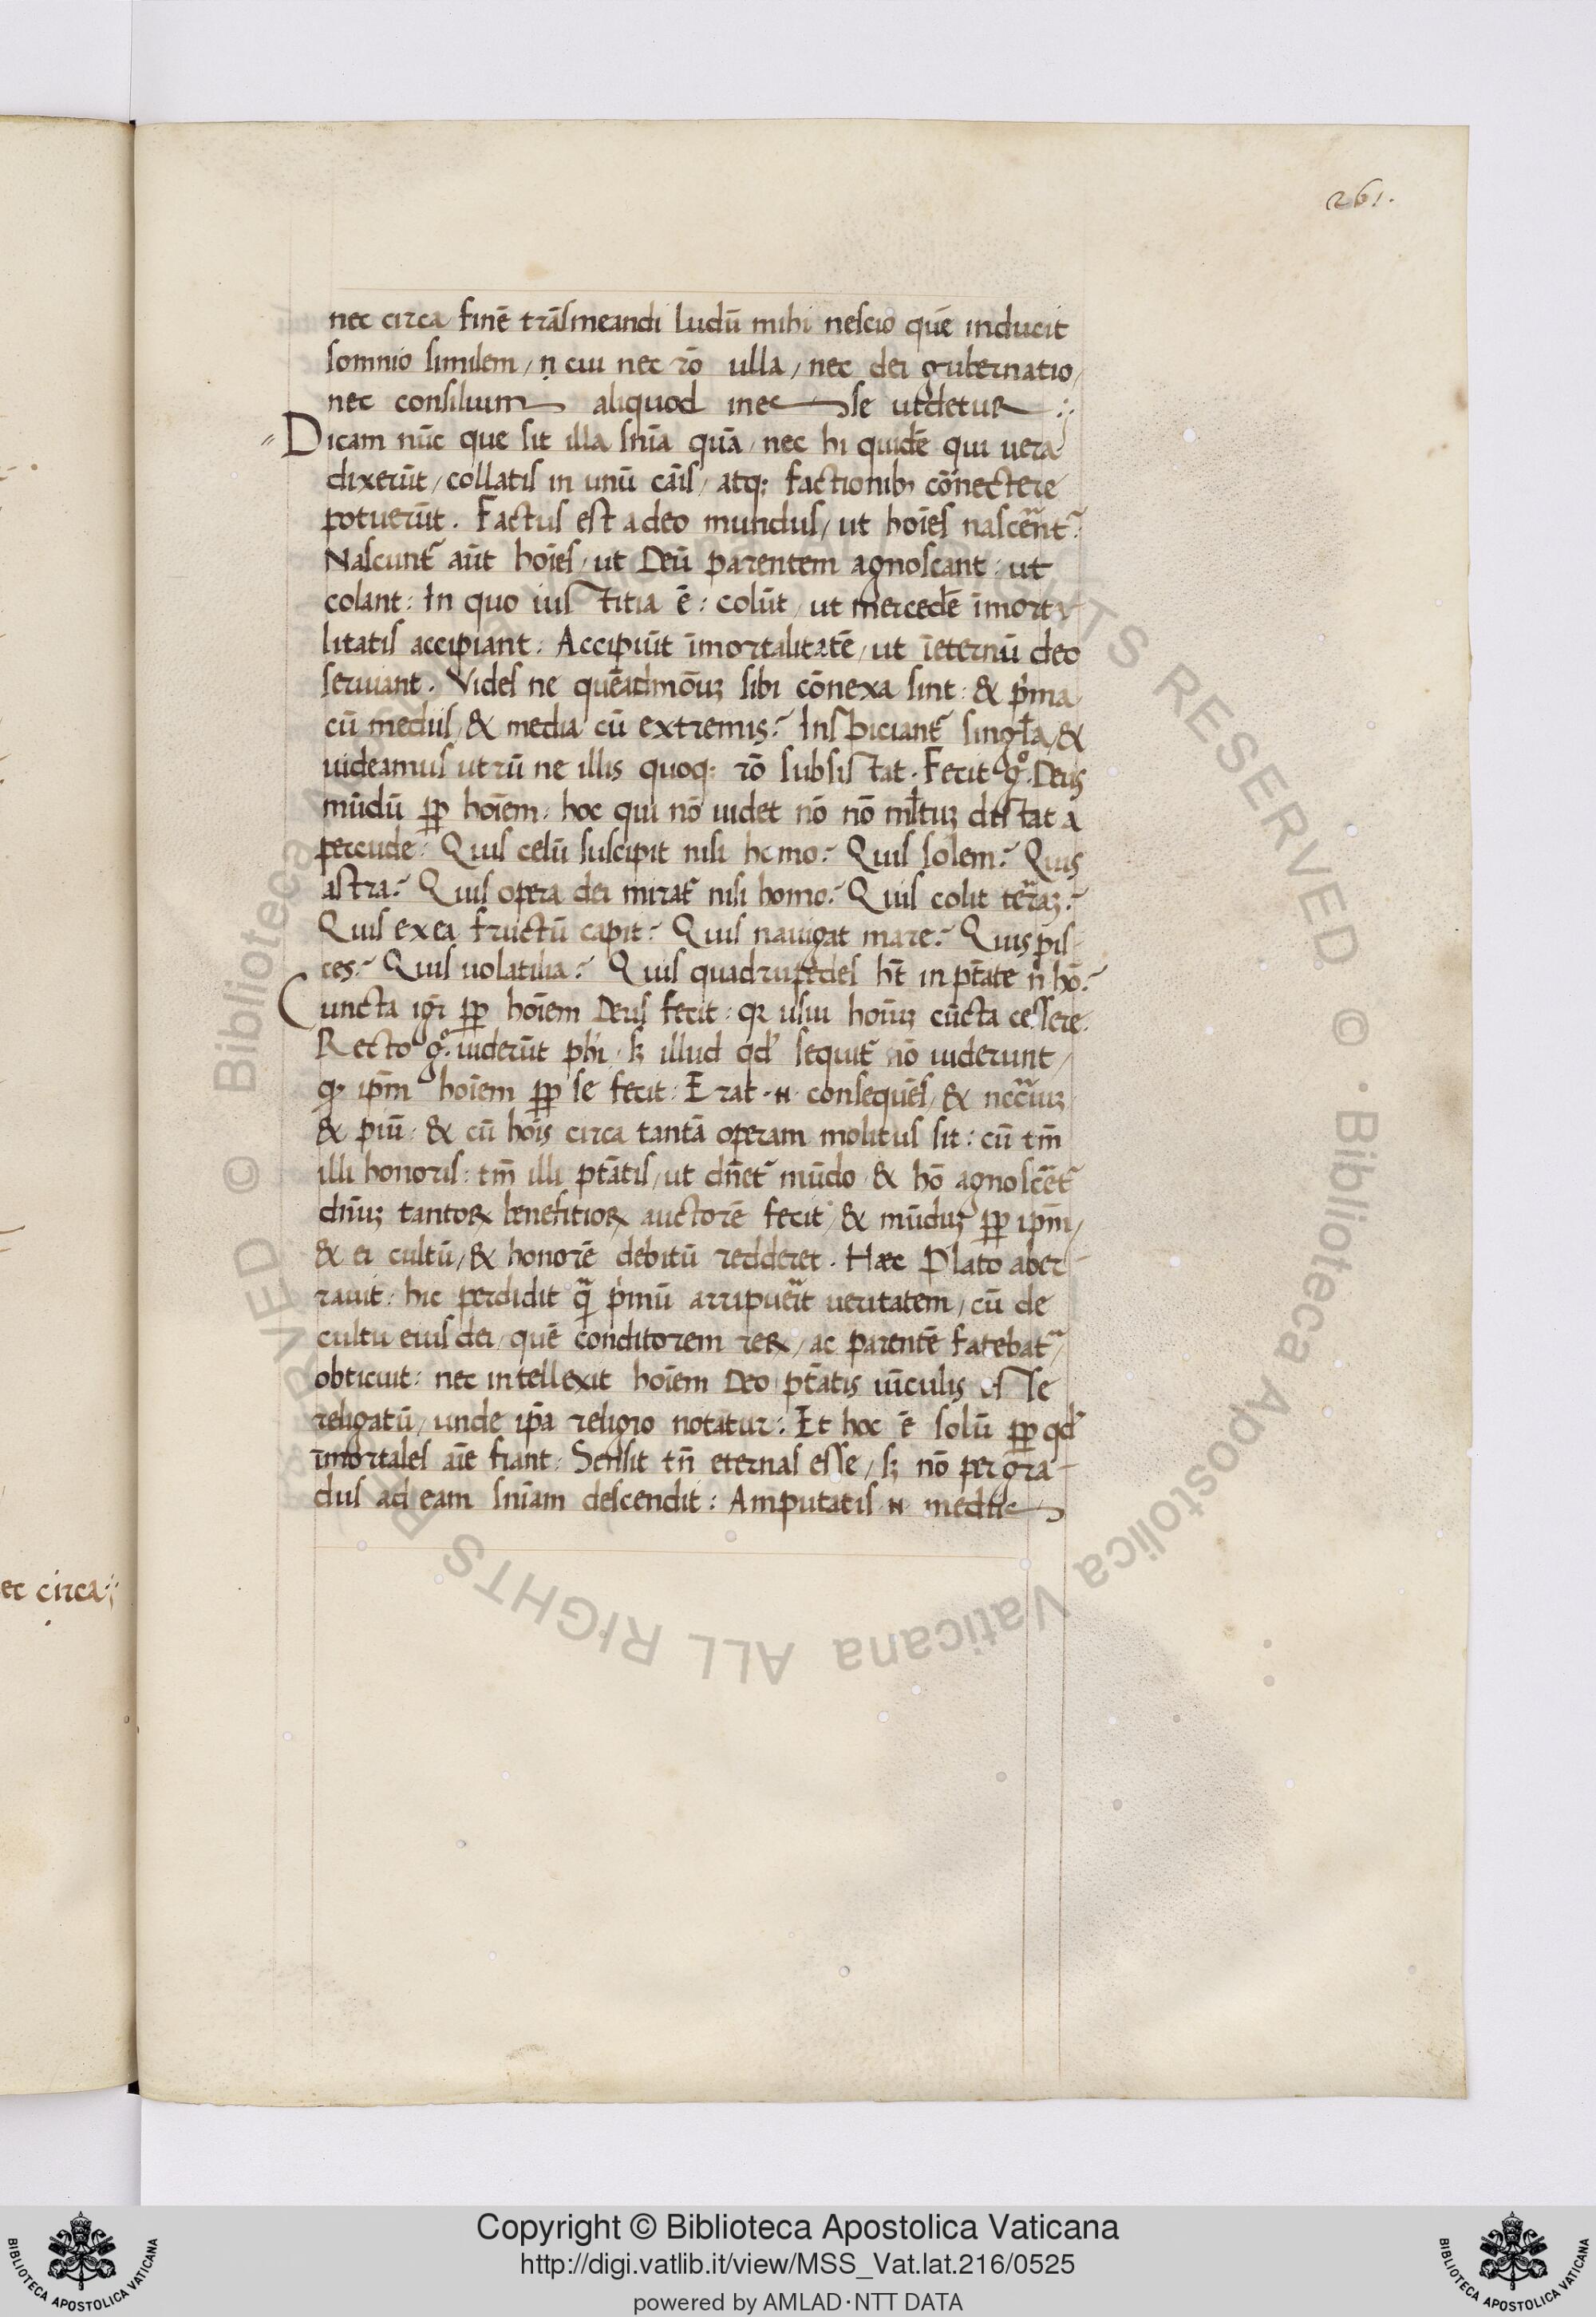 261.
nec circa finē trāsmeandi ludū mihi nescio quē inducit
somnio similem / ṇ cui nec rō ulla / nec dei gubernatio /
nec consilium aliquod inesse uideatur :·
Dicam nūc que sit illa snīa quā / nec hi quidē qui uera
dixerūt / collatis in unū cāis / atq; factionib; cōnectere
potuerūt . Factus est a deo mundus / ut hoīes nascerent᷑ :
Nascunt᷑ aūt hoīes / ut Deū parentem agnoscant : ut
colant : In quo iustitia ē : colūt / ut mercedē īmorta
litatis accipiant : Accipiūt īmortalitatē / ut īeternū deo
seruiant . Vides ne quēadmōuꝫ sibi cōnexa sint : & pͥma
cū mediis / & media cū extremis ? Inspiciant᷑ singl̄a / &
uideamus utrū ne illis quoq; rō subsistat . Fecit gͦ . Deus
mūdū ꝓp hoīem : hoc qui nō uidet nō nō ml̄tuꝫ destat a
pecude : Quis celū suscipit nisi homo ? Quis solem ? Quis
astra ? Quis opera dei mirat᷑ nisi homo ? Quis colit terraꝫ ?
Quis ex ea fructū capit ? Quis nauigat mare ? Quis pis-
ces ? Quis uolatilia ? Quis quadrupedes hт̄ in ptāte n̄ hō ?
Cuncta igr̄ ꝓp hoīem Deus fecit : qꝛ usui hoīuꝫ cūcta cessere .
Recto gͦ . uiderūt phi / sꝫ illud qd̕ sequit᷑ nō uiderunt /
qꝛ ipm̄ hoīem ꝓp se fecit : Erat · N · consequēs / & nccāriuꝫ
& piū : & cū hoīs circa tantā operam molitus sit : cū tm̄
illi honoris : tm̄ illi ptātis / ut dn̄et᷑ mūdo & hō agnoscēt᷑
dn̄uꝫ tantoꝝ benefitioꝝ auctorē fecit / & mūduꝫ ꝓp ipm̄ /
& ei cultū / & honorē debitū redderet . Haec Plato aber-
rauit : hic perdidit quā pͥmū arripuerat ueritatem / cū de
cultu eius dei / quē conditorem reꝝ / ac parentē fatebat᷑ /
obticuit : nec intellexit hoīem Deo ptātis uīculis esse
religatū / unde ipā religio notatur : Et hoc ē solū ꝓp qd̕
īmortales aīe fiant : Sensit tn̄ eternas esse / sꝫ nō per gra-
dus ad eam snīam descendit : Amputatis N mediis
ec circa :·
Copyright © Biblioteca Apostolica Vaticana
http://digi.vatlib.it/view/MSS_Vat.lat.216/0525
powered by AMLAD·NTT DATA
BIBLIOTECA APOSTOLICA VATICANA
BIBLIOTECA APOSTOLICA VATICANA
© Biblioteca Apostolica Vaticana ALL RIGHTS RESERVED © · Biblioteca Apostolica Vaticana ALL RIGHTS RESERVED